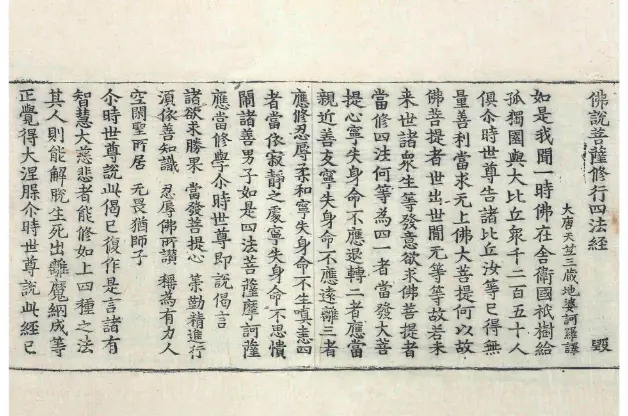 佛說菩薩修行四法經 毀
大唐天竺三藏地婆訶羅譯
如是我聞一時佛在舍衛國祇樹給
孤獨園與大比丘衆千二百五十人
俱尒時世尊告諸比丘汝等已得無
量善利當求无上佛大菩提何以故
佛菩提者世出世間无等等故若未
来世諸衆生等發意欲求佛菩提者
當修四法何等為四一者當發大菩
提心寧失身命不應退轉二者應當
親近善友寧失身命不應遠離三者
應修忍辱柔和寧失身命不生嗔恚四
者當依寂静之處寧失身命不思憒
閙諸善男子如是四法菩薩摩訶薩
應當修學尒時世尊即說偈言
諸欲求勝果 當發菩提心 策勤精進行
須依善知識 忍辱佛所讃 稱為有力人
空閑聖所居 无畏猶師子
尒時世尊說此偈已復作是言諸有
智慧大慈悲者能修如上四種之法
其人則能解脫生死出離魔網成等
正覺得大涅槃尒時世尊說此經已